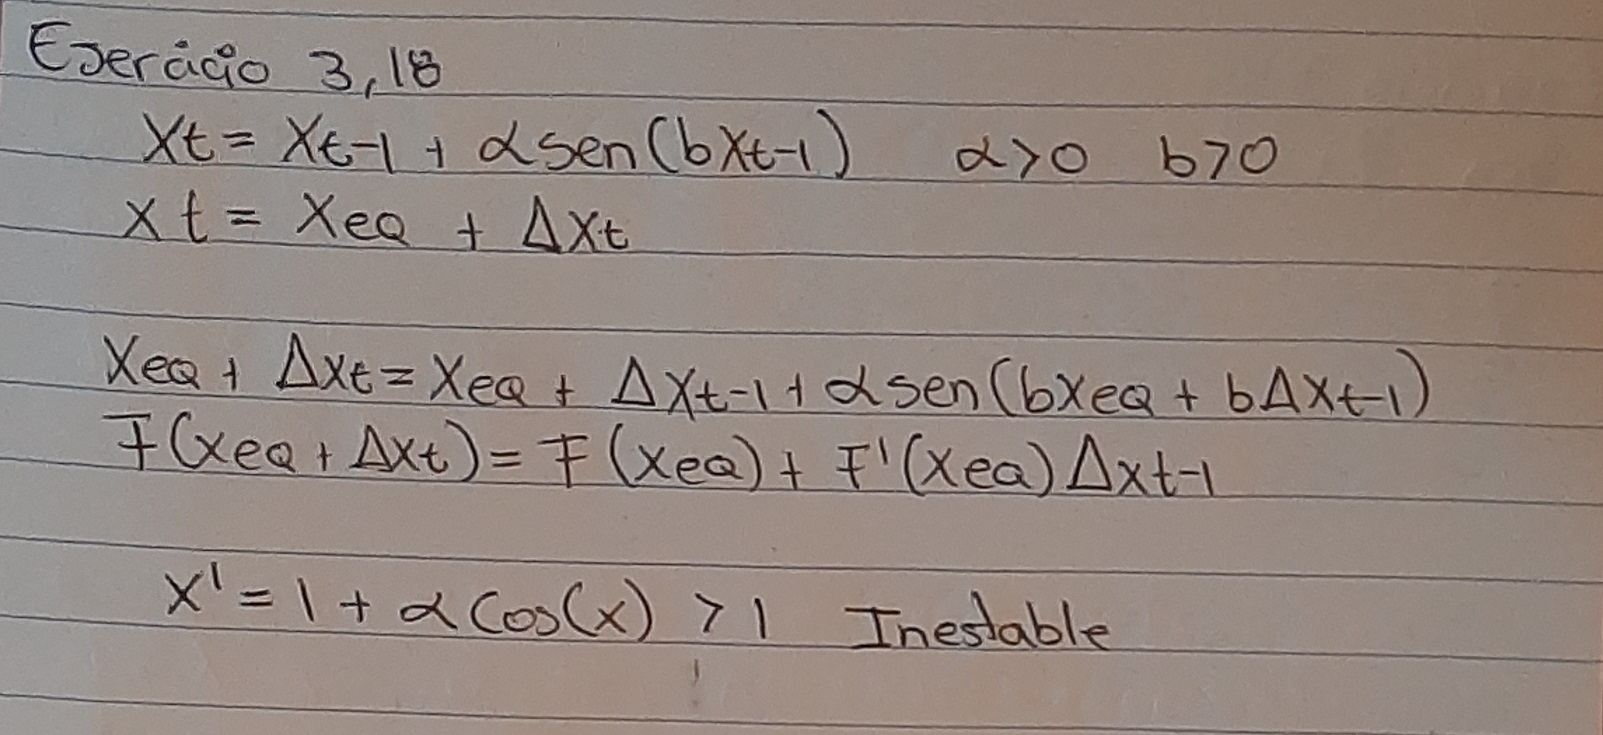 Ejercicio 3,18
Xt = Xt-1 + αsen(bXt-1) α>0 b>0
xt = XeQ + ΔXt
XeQ + ΔXt = XeQ + ΔXt-1 + αsen(bXeQ + bΔXt-1)
F(XeQ + ΔXt) = F(XeQ) + F'(XeQ)ΔXt-1
X' = 1 + αCos(X) > 1 Inestable